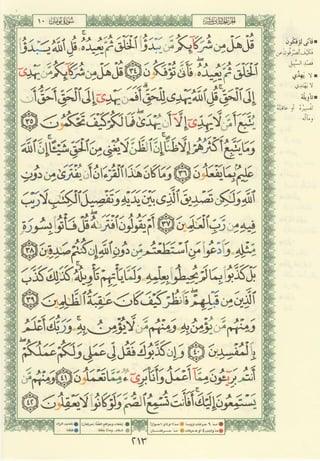 الجزء الحادي عشر
سورة يونس ١٠
قُلْ هَلْ مِن شُرَكَآئِكُم مَّن يَبْدَؤُا۟ ٱلْخَلْقَ ثُمَّ يُعِيدُهُۥ قُلِ ٱللَّهُ يَبْدَؤُا۟
ٱلْخَلْقَ ثُمَّ يُعِيدُهُۥ فَأَنَّىٰ تُؤْفَكُونَ ٣٤ قُلْ هَلْ مِن شُرَكَآئِكُم مَّن يَهْدِىٓ
إِلَى ٱلْحَقِّ قُلِ ٱللَّهُ يَهْدِى لِلْحَقِّ أَفَمَن يَهْدِىٓ إِلَى ٱلْحَقِّ أَحَقُّ أَن
يُتَّبَعَ أَمَّن لَّا يَهِدِّىٓ إِلَّآ أَن يُهْدَىٰ فَمَا لَكُمْ كَيْفَ تَحْكُمُونَ ٣٥
وَمَا يَتَّبِعُ أَكْثَرُهُمْ إِلَّا ظَنًّا إِنَّ ٱلظَّنَّ لَا يُغْنِى مِنَ ٱلْحَقِّ شَيْـًٔا إِنَّ ٱللَّهَ
عَلِيمٌۢ بِمَا يَفْعَلُونَ ٣٦ وَمَا كَانَ هَٰذَا ٱلْقُرْءَانُ أَن يُفْتَرَىٰ مِن دُونِ
ٱللَّهِ وَلَٰكِن تَصْدِيقَ ٱلَّذِى بَيْنَ يَدَيْهِ وَتَفْصِيلَ ٱلْكِتَٰبِ لَا رَيْبَ
فِيهِ مِن رَّبِّ ٱلْعَٰلَمِينَ ٣٧ أَمْ يَقُولُونَ ٱفْتَرَىٰهُ قُلْ فَأْتُوا۟ بِسُورَةٍ
مِّثْلِهِۦ وَٱدْعُوا۟ مَنِ ٱسْتَطَعْتُم مِّن دُونِ ٱللَّهِ إِن كُنتُمْ صَٰدِقِينَ ٣٨
بَلْ كَذَّبُوا۟ بِمَا لَمْ يُحِيطُوا۟ بِعِلْمِهِۦ وَلَمَّا يَأْتِهِمْ تَأْوِيلُهُۥ كَذَٰلِكَ كَذَّبَ
ٱلَّذِينَ مِن قَبْلِهِمْ فَٱنظُرْ كَيْفَ كَانَ عَٰقِبَةُ ٱلظَّٰلِمِينَ ٣٩
وَمِنْهُم مَّن يُؤْمِنُ بِهِۦ وَمِنْهُم مَّن لَّا يُؤْمِنُ بِهِۦ وَرَبُّكَ أَعْلَمُ
بِٱلْمُفْسِدِينَ ٤٠ وَإِن كَذَّبُوكَ فَقُل لِّى عَمَلِى وَلَكُمْ عَمَلُكُمْ
أَنتُم بَرِيٓـُٔونَ مِمَّآ أَعْمَلُ وَأَنَا۠ بَرِىٓءٌ مِّمَّا تَعْمَلُونَ ٤١ وَمِنْهُم مَّن
يَسْتَمِعُونَ إِلَيْكَ أَفَأَنتَ تُسْمِعُ ٱلصُّمَّ وَلَوْ كَانُوا۟ لَا يَعْقِلُونَ ٤٢
فأنى تؤفكون
لا يهدي
لا يهتدي
تأويله
٢١٣